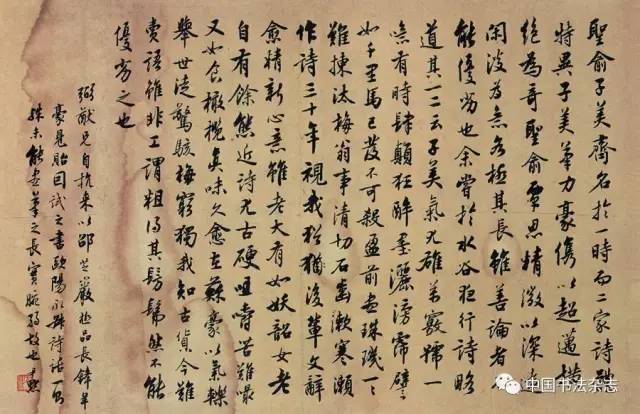 聖俞子美齋名於一時而二家詩體
特異子美筆力豪儁以超邁橫
絕為奇聖俞覃思精微以深遠
閑淡為意各極其長雖善論者不
能優劣也余嘗於水谷夜行詩略
道其一二云子美氣尤雄萬竅號一
噫有時肆顛狂醉墨灑滂霈譬
如千里馬已發不可殺盈前盡珠璣一一
難揀汰梅翁事清切石齒漱寒瀨
作詩三十年視我猶猶後輩文辭
愈精新心意雖老大有如妖韶女老
自有餘態近詩尤古硬咀嚼苦難嘬
又如食橄欖真味久愈在蘇豪以氣轢
舉世徒驚駭梅窮獨我知古貨今難
賣語雖非工謂粗得其髣髴然不能
優劣之也
弼猷兄自杭來以邵芝巖品長鋒羊
毫見貽因試之書歐陽永叔詩話一
殊未能盡筆之長實腕弱故也 尹默
中国书法杂志